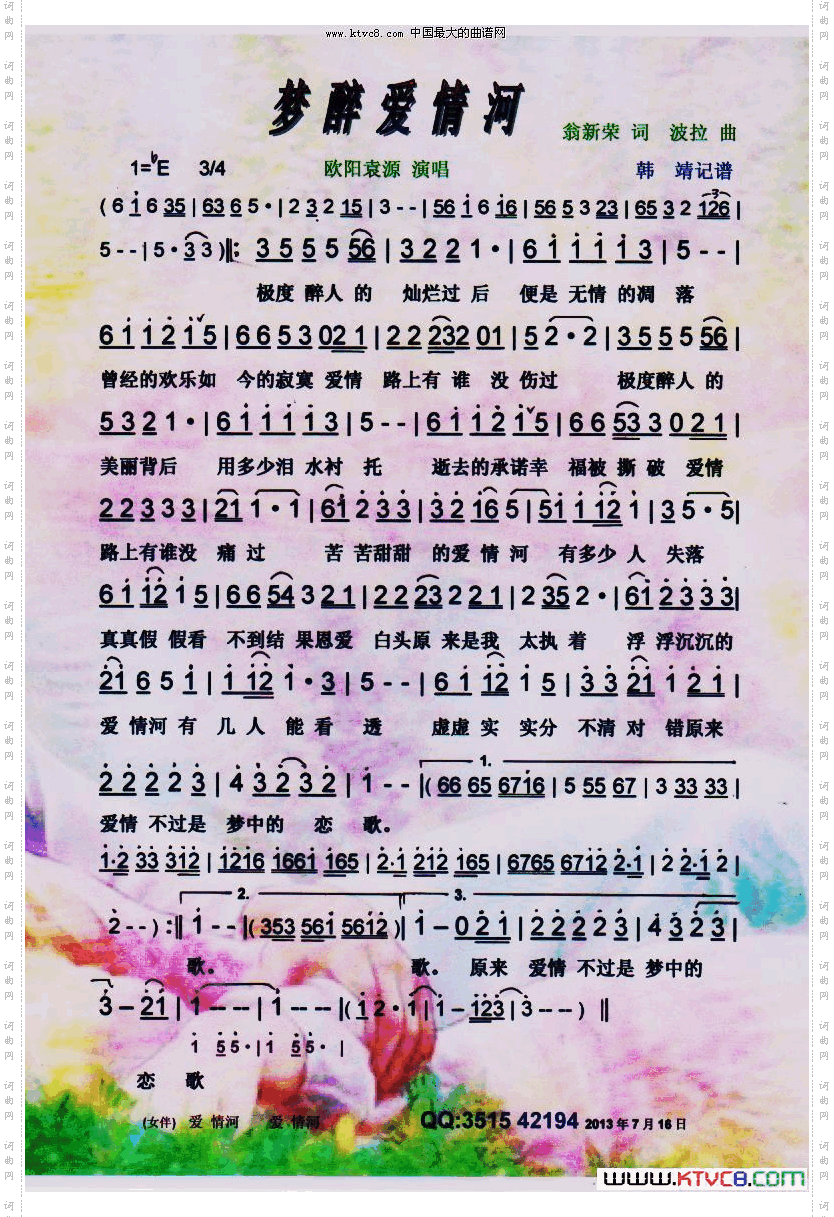 www.ktvc8.com 中国最大的曲谱网
梦醉爱情河
翁新荣 词 波拉 曲
1=♭E 3/4 欧阳袁源 演唱 韩 靖记谱
(6 i 6 35 | 63 6 5· | 2 3 2 15 | 3 - - | 56 i 6 i6 | 56 5 3 23 | 65 3 2 126 |
5 - - | 5· 3 3 )‖: 3 5 5 5 5 56 | 3 2 2 1· | 6 i i i i 3 | 5 - - |
极度 醉人 的 灿烂过 后 便是 无情 的凋 落
6 i i 2 i 5 | 6 6 5 3 021 | 2 2 23 2 01 | 5 2·2 | 3 5 5 5 5 56 |
曾经的欢乐如 今的寂寞 爱情 路上有 谁 没 伤过 极度醉人 的
5 3 2 1· | 6 i i i i 3 | 5 - - | 6 i i 2 i 5 | 6 6 53 3 0 21 |
美丽背后 用多少泪 水衬 托 逝去的承诺幸 福被 撕 破 爱情
2 2 3 3 3 | 21 1·1 | 6i 2 3 3 | 3 2 i6 5 | 5i i i2 i | 3 5·5 |
路上有谁没 痛 过 苦 苦甜甜 的爱 情 河 有多少 人 失落
6 i i2 i 5 | 6 6 54 3 2 1 | 2 2 23 2 2 1 | 2 35 2· | 6i 2 3 3 3 |
真真假 假看 不到结 果恩爱 白头原 来是我 太执 着 浮 浮沉沉的
2i 6 5 i | i i2 i·3 | 5 - - | 6 i i2 i 5 | 3 3 2i i 2 i |
爱 情河 有 几 人 能 看 透 虚虚 实 实分 不清 对 错原来
2 2 2 2 3 | 4 3 2 3 2 | i - - |( 66 65 67i6 | 5 55 67 | 3 33 33 |
1.
爱情 不过是 梦中的 恋 歌。
i·2 33 3i2 | i2i6 i66i i65 | 2·i 2i2 i65 | 6765 67i2 2·i | 2 2·i 2 |
2. 3.
2 - - ) :‖ i - - ‖( 353 56i 56i2 )| i - 0 2 i | 2 2 2 2 3 | 4 3 2 3 |
歌。 歌。 原来 爱情 不过是 梦中的
3 - 2i | i - - - | i - - - |( i 2·i | i - i23 | 3 - - - ) ‖
i 5 5· | i 5 5· |
恋 歌
(女伴) 爱 情河 爱 情河 QQ:3515 42194 2013年7月16日
www.KTVC8.com
词曲网